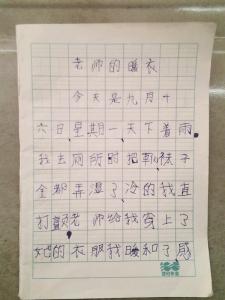 老师的暖衣
今天是九月十
六日,星期一,天下着雨,
我去厕所时把鞋袜子
全都弄湿了,冷的我直
打颤,老师给我穿上了
她的衣服我暖和了,感